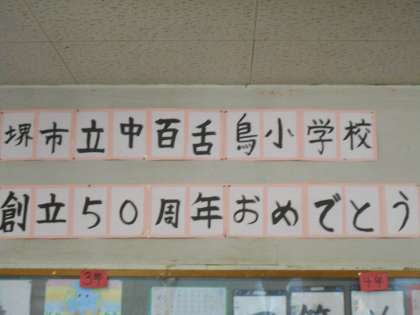 堺市立中百舌鳥小学校
創立50周年おめでとう
3年 4年